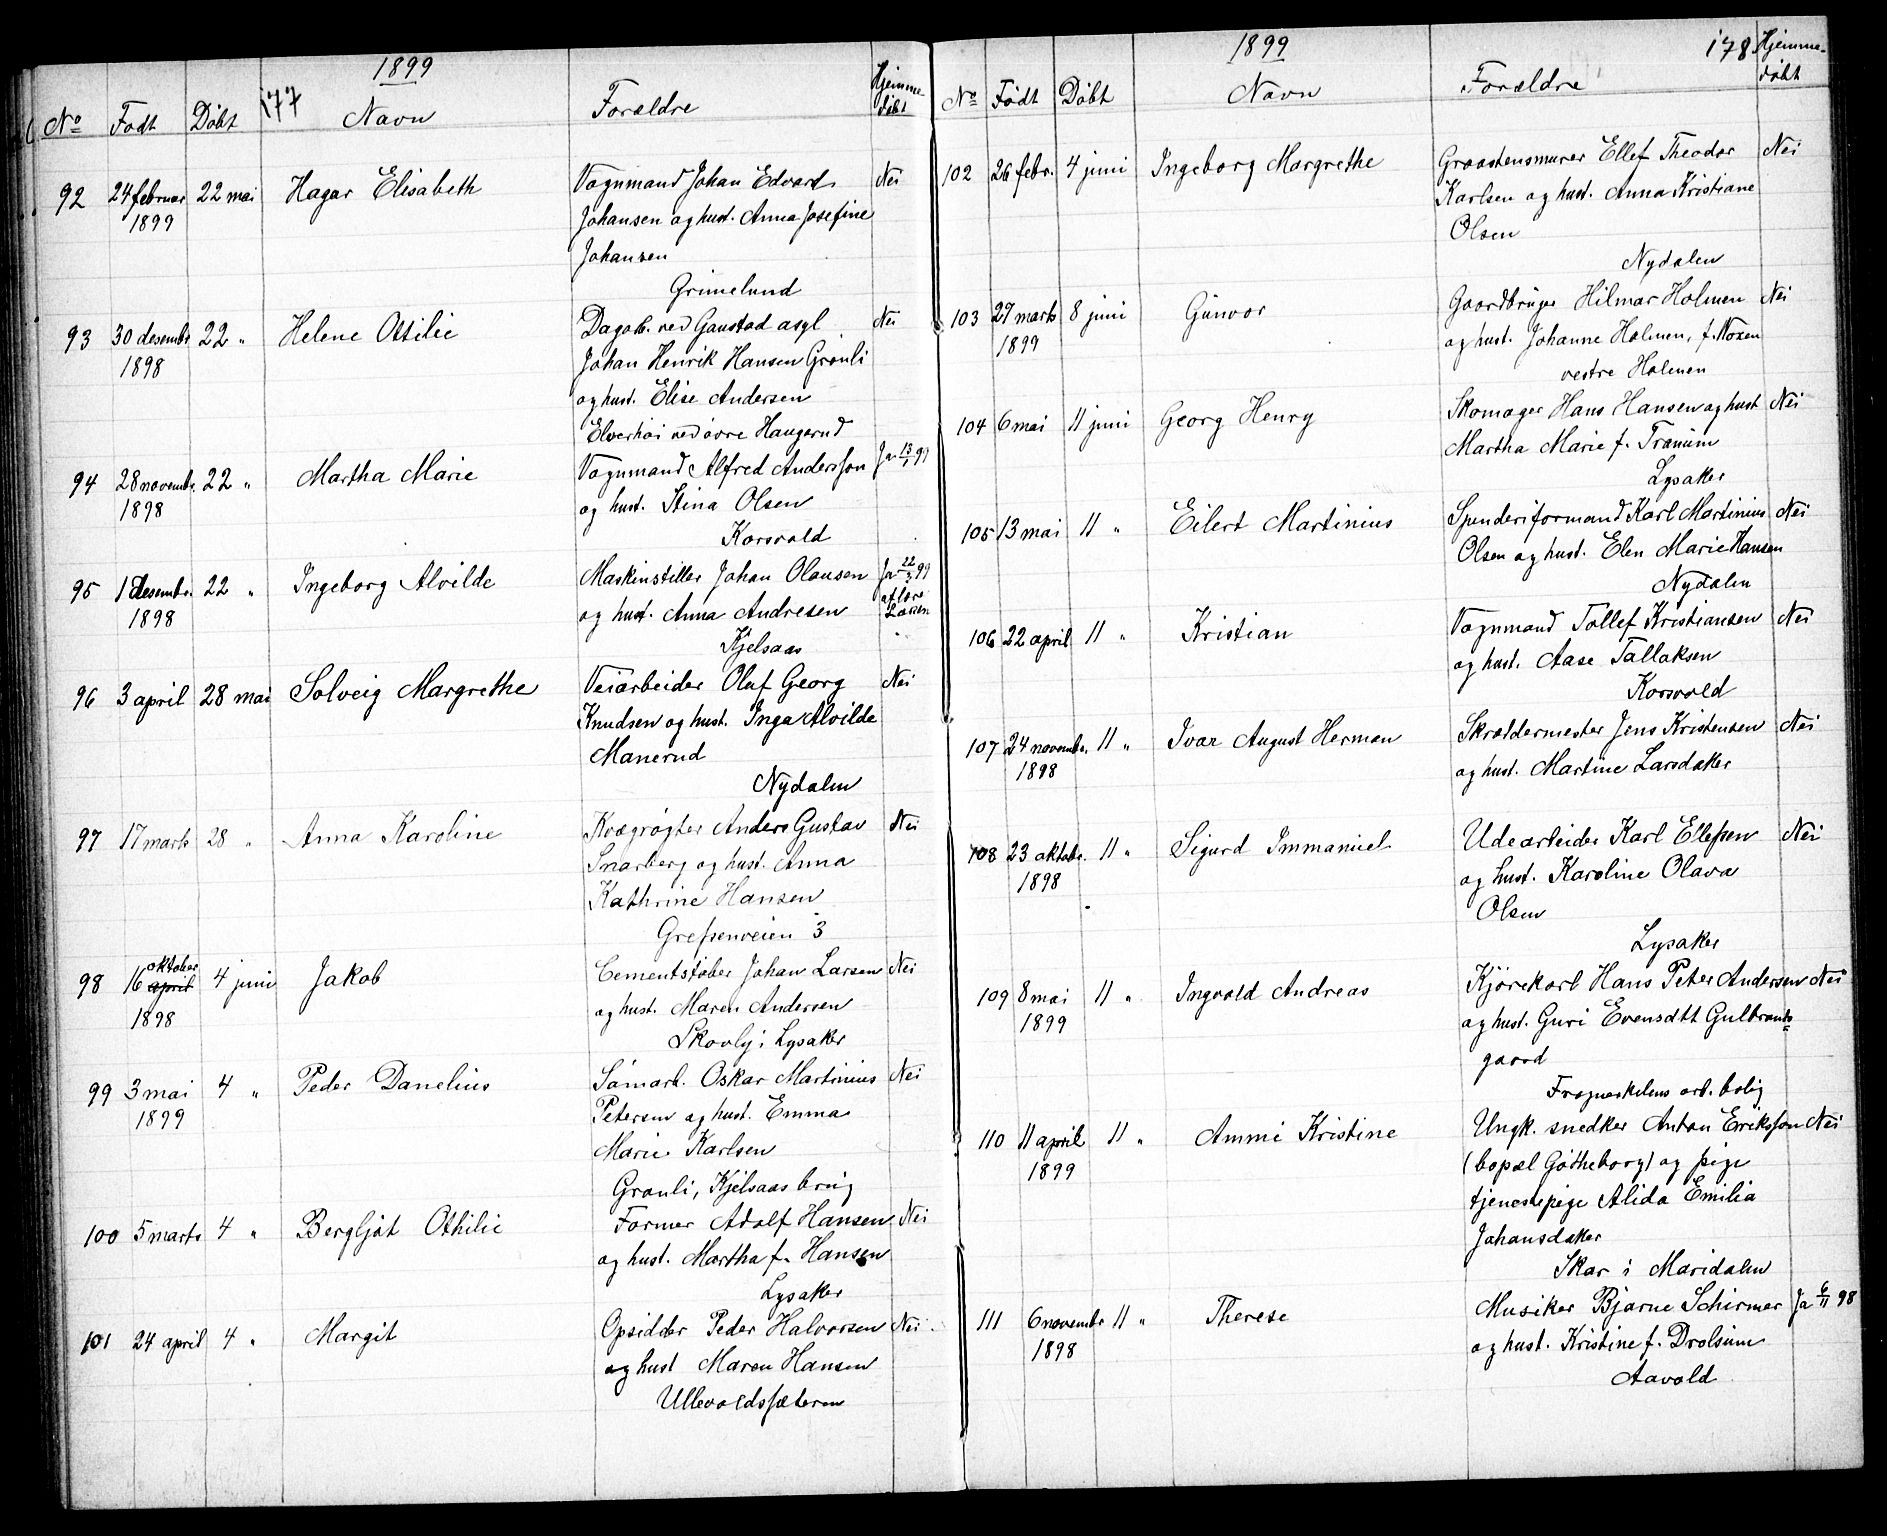 177
1899
No Født Døbt Navn Forældre Hjemme-
døbt
92 24 februar 22 mai Hagar Elisabeth Vognmand Johan Edvard Nei
1899 Johansen og hust. Anna Josefine
Johansen
Grimelund
93 30 desembr. 22 " Helene Otilie Dagarb. ved Gaustad asyl Nei
1898 Johan Henrik Hansen Grønli
og hust. Elise Andersen
Elverhøi ved øvre Haugerud
94 28 novembr. 22 " Martha Marie Vognmand Alfred Andersson Ja 13/1 99
1898 og hust. Stina Olsen
Korsvold
95 1 desembr. 22 " Ingeborg Alvilde Maskinstiller Johan Olausen Ja 22/3 99
1898 og hust. Anna Andresen af lære Larsen
Kjelsaas
96 3 april 28 mai Solveig Margrethe Veiarbeider Oluf Georg Nei
Knudsen og hust. Inga Alvilde
Manerud
Nydalen
97 17 marts 28 " Anna Karoline Kvægrøgter Anders Gustav Nei
Snarberg og hust. Anna
Kathrine Hansen
Grefsenveien 3
oktober
98 16 april 4 juni Jakob Cementstøber Johan Larsen Nei
1898 og hust. Maren Andersen
Skovly i Lysaker
99 3 mai 4 " Peder Danelius Sømarb. Oskar Martinius Nei
1899 Petersen og hust. Emma
Marie Karlsen
Grønli, Kjelsaas brug
100 5 marts 4 " Bergljot Othilie Former Adolf Hansen Nei
og hust. Martha f. Hansen
Lysaker
101 24 april 4 " Margit Opsidder Peder Halvorsen Nei
og hust Maren Hansen
Ullevoldssæteren
178
1899
No Født Døbt Navn Forældre Hjemme-
døbt
102 26 febr. 4 juni Ingeborg Margrethe Graastensmurer Ellef Theodor Nei
Karlsen og hust. Anna Kristiane
Olsen
Nydalen
103 27 marts 8 juni Gunvor Gaardbruger Hilmar Holmen Nei
1899 og hust. Johanne Holmen, f. Noxen
vestre Holmen
104 6 mai 11 juni Georg Henry Skomager Hans Hansen og hust Nei
Martha Marie f. Tranum
Lysaker
105 13 mai 11 " Eilert Martinius Spinderiformand Karl Martinius Nei
Olsen og hust. Elen Marie Hansen
Nydalen
106 22 april 11 " Kristian Vognmand Tollef Kristiansen Nei
og hust. Aase Tallaksen
Korsvold
107 24 novembr. 11 " Ivar August Herman Skræddermester Jens Kristensen Nei
1898 og hust. Martine Larsdaker
108 23 oktobr. 11 " Sigurd Immanuel Udearbeider Karl Ellefsen Nei
1898 og hust. Karoline Olava
Olsen
Lysaker
109 8 mai 11 " Ingvald Andreas Kjørekarl Hans Peter Andersen Nei
1899 og hust. Guri Evensdtt Gulbrands-
gaard
Frognerkilens arb. bolig
110 11 april 11 " Ammi Kristine Ungk. snedker Anton Eriksson Nei
1899 (bopæl Gøtheborg) og pige
tjenestepige Alida Emilia
Johansdaker
Skar i Maridalen
111 6 novembr 11 " Therese Musiker Bjarne Schirmer Ja 6/11 98
1898 og hust. Kristine f. Drolsum
Aavold